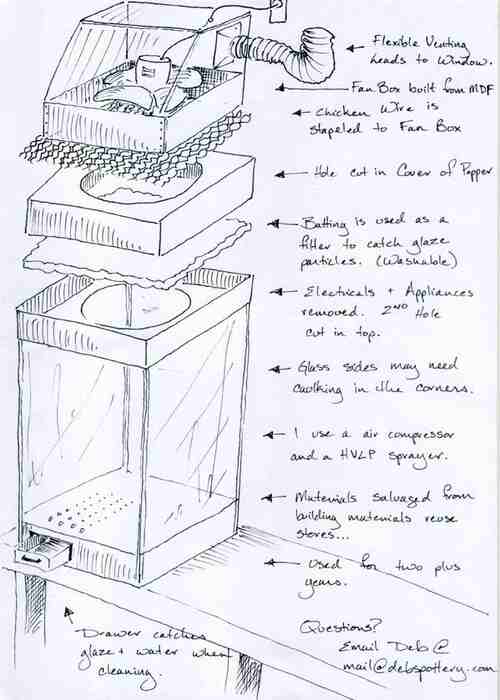 Flexible Venting
leads to window.
Fan Box built from MDF
Chicken Wire is
stapeled to Fan Box
Hole cut in Cover of Popper
Batting is used as a
filter to catch glaze
particles. (Washable)
Electricals + Appliances
removed. 2ND Hole
cut in top.
Glass sides may need
caulking in the corners.
I use a air compressor
and a HVLP sprayer.
Materials salvaged from
building materials reuse
stores...
Used for two plus
years.
Drawer catches
glaze + water when
cleaning.
Questions?
Email Deb @
mail@debspottery.com